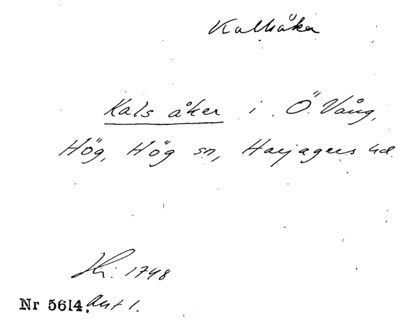 Kalsåker
Kals åker i Ö. Vång,
Hög, Hög sn, Harjagers hd
1748
Nr 5614. Akt 1.